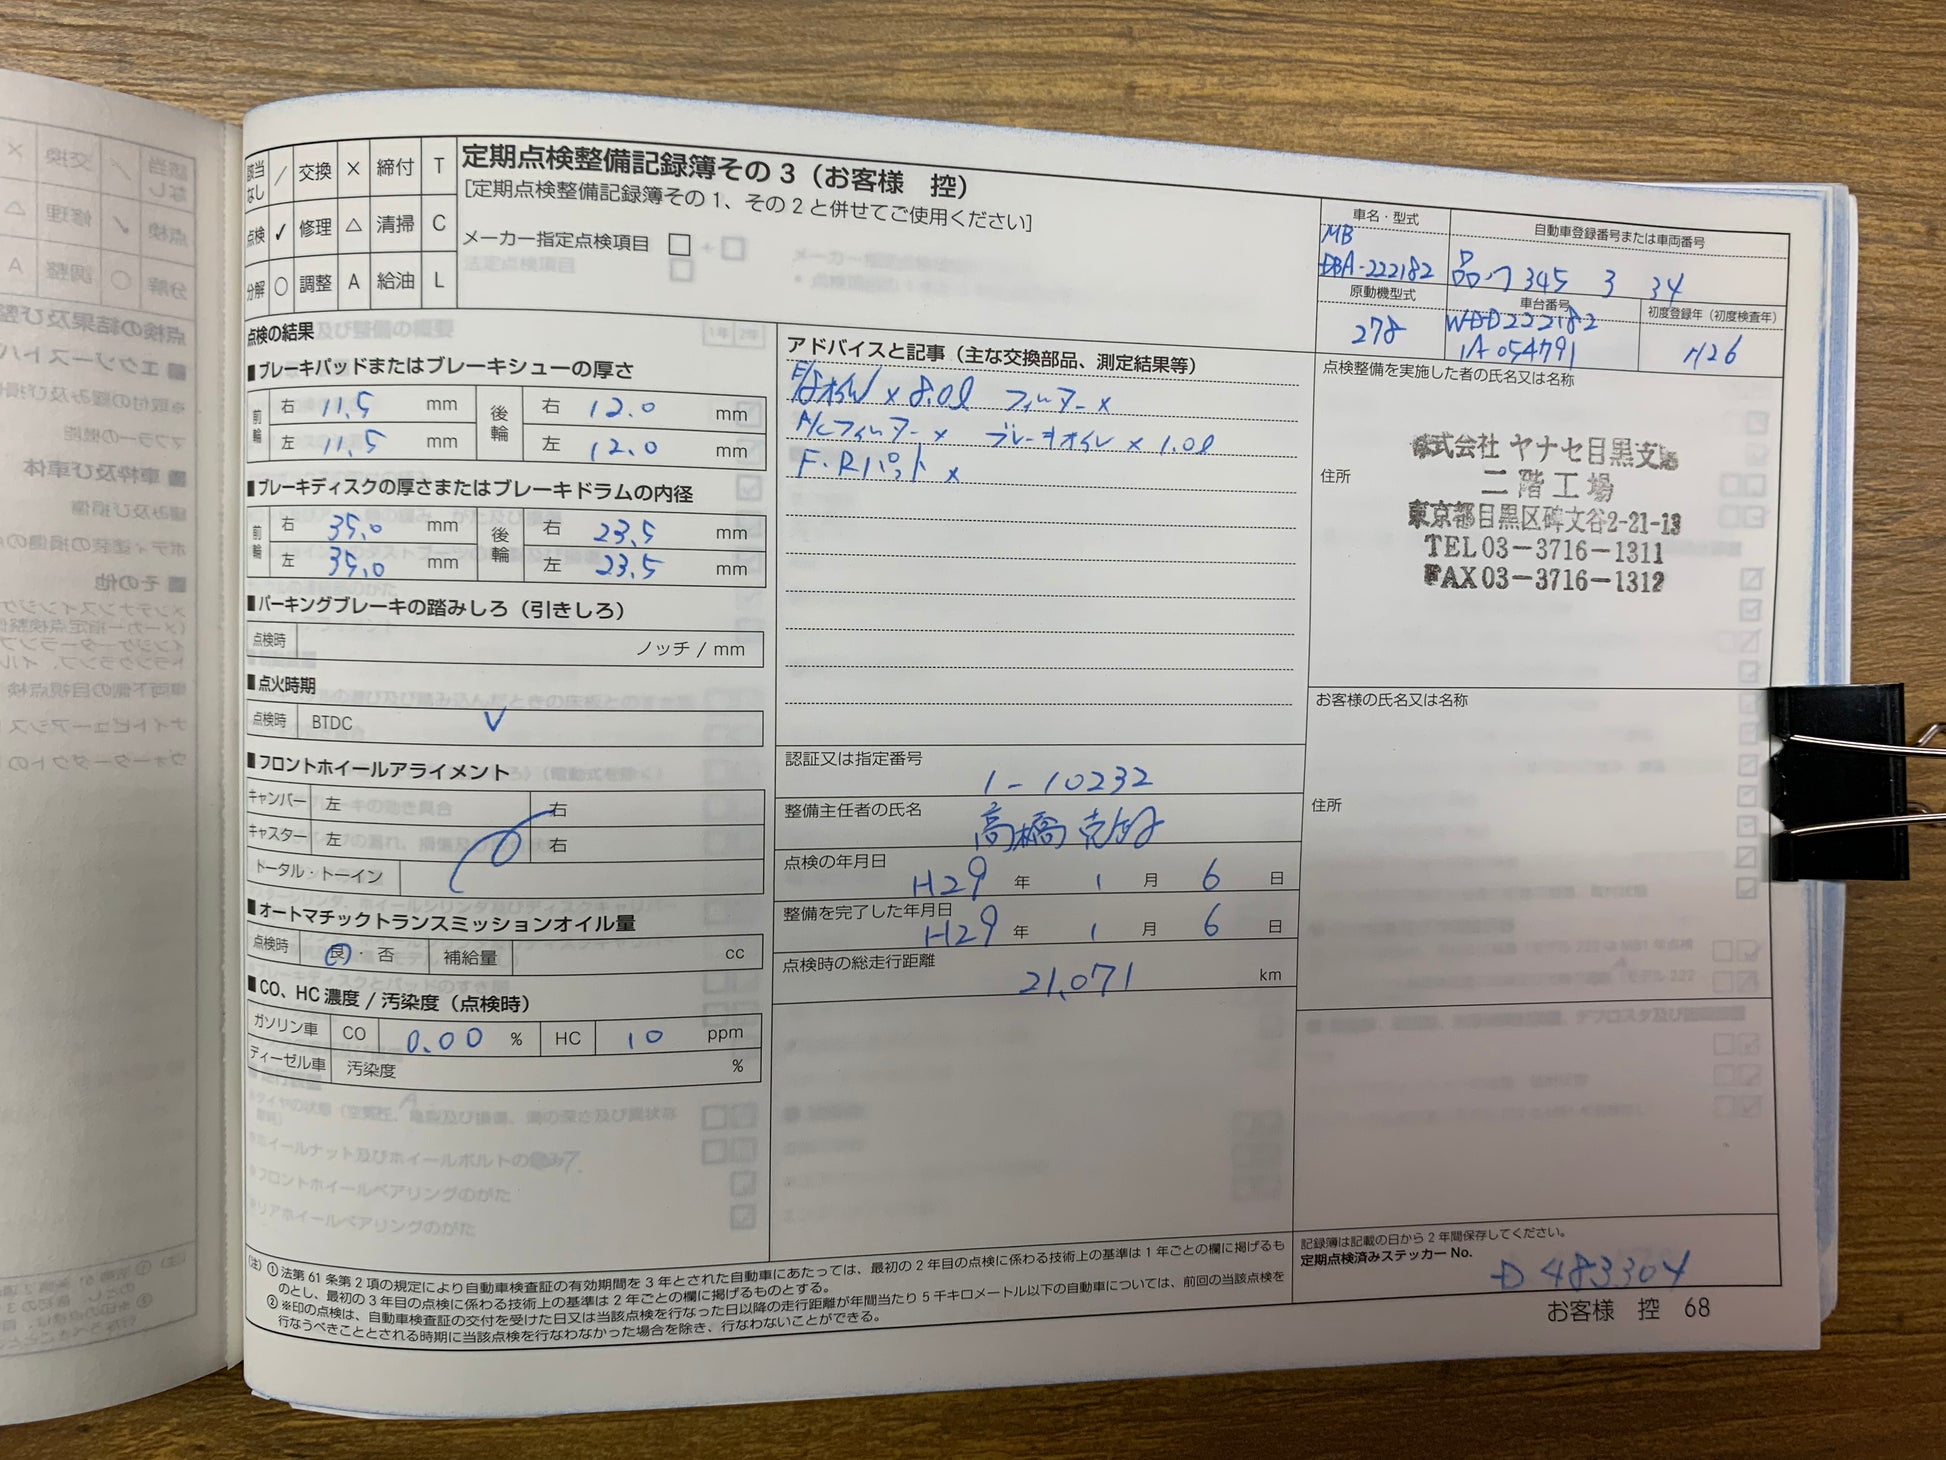 定期点検整備記録簿その3（お客様　控）
[定期点検整備記録簿その1、その2と併せてご使用ください]
該当なし / 交換 × 締付 T
点検 ✓ 修理 △ 清掃 C
分解 ○ 調整 A 給油 L
メーカー指定点検項目 □
車名・型式
MB
DBA-222182
自動車登録番号または車両番号
品川 345 3 34
原動機型式
278
車台番号
WDD222182
1A054791
初度登録年（初度検査年）
H26
点検の結果
■ブレーキパッドまたはブレーキシューの厚さ
前輪 右 11.5 mm 後輪 右 12.0 mm
左 11.5 mm 左 12.0 mm
■ブレーキディスクの厚さまたはブレーキドラムの内径
前輪 右 35.0 mm 後輪 右 23.5 mm
左 35.0 mm 左 23.5 mm
■パーキングブレーキの踏みしろ（引きしろ）
点検時 ノッチ / mm
■点火時期
点検時 BTDC ✓
■フロントホイールアライメント
キャンバー 左 右
キャスター 左 右
トータル・トーイン
■オートマチックトランスミッションオイル量
点検時 良・否 補給量 cc
■CO、HC濃度 / 汚染度（点検時）
ガソリン車 CO 0.00 % HC 10 ppm
ディーゼル車 汚染度 %
アドバイスと記事（主な交換部品、測定結果等）
E/gオイル × 8.0ℓ フィルター ×
A/Cフィルター × ブレーキオイル × 1.0ℓ
F・Rパット ×
認証又は指定番号
1-10232
整備主任者の氏名
高橋
点検の年月日
H29 年 1 月 6 日
整備を完了した年月日
H29 年 1 月 6 日
点検時の総走行距離
21,071 km
点検整備を実施した者の氏名又は名称
住所
株式会社 ヤナセ目黒支店
二階工場
東京都目黒区碑文谷2-21-13
TEL03-3716-1311
FAX03-3716-1312
お客様の氏名又は名称
住所
記録簿は記載の日から2年間保存してください。
定期点検済みステッカー No.
D 483304
（注）①法第61条第2項の規定により自動車検査証の有効期間を3年とされた自動車にあたっては、最初の2年目の点検に係わる技術上の基準は1年ごとの欄に掲げるも
のとし、最初の3年目の点検に係わる技術上の基準は2年ごとの欄に掲げるものとする。
②※印の点検は、自動車検査証の交付を受けた日又は当該点検を行なった日以降の走行距離が年間当たり5千キロメートル以下の自動車については、前回の当該点検を
行なうべきこととされる時期に当該点検を行なわなかった場合を除き、行なわないことができる。
お客様　控 68